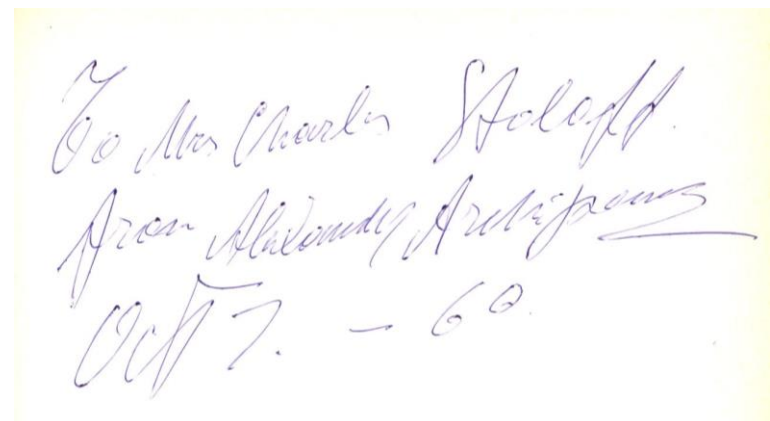 To Mrs Charles Stoloff.
From Alexander Archipenko
Oct 7. - 60.